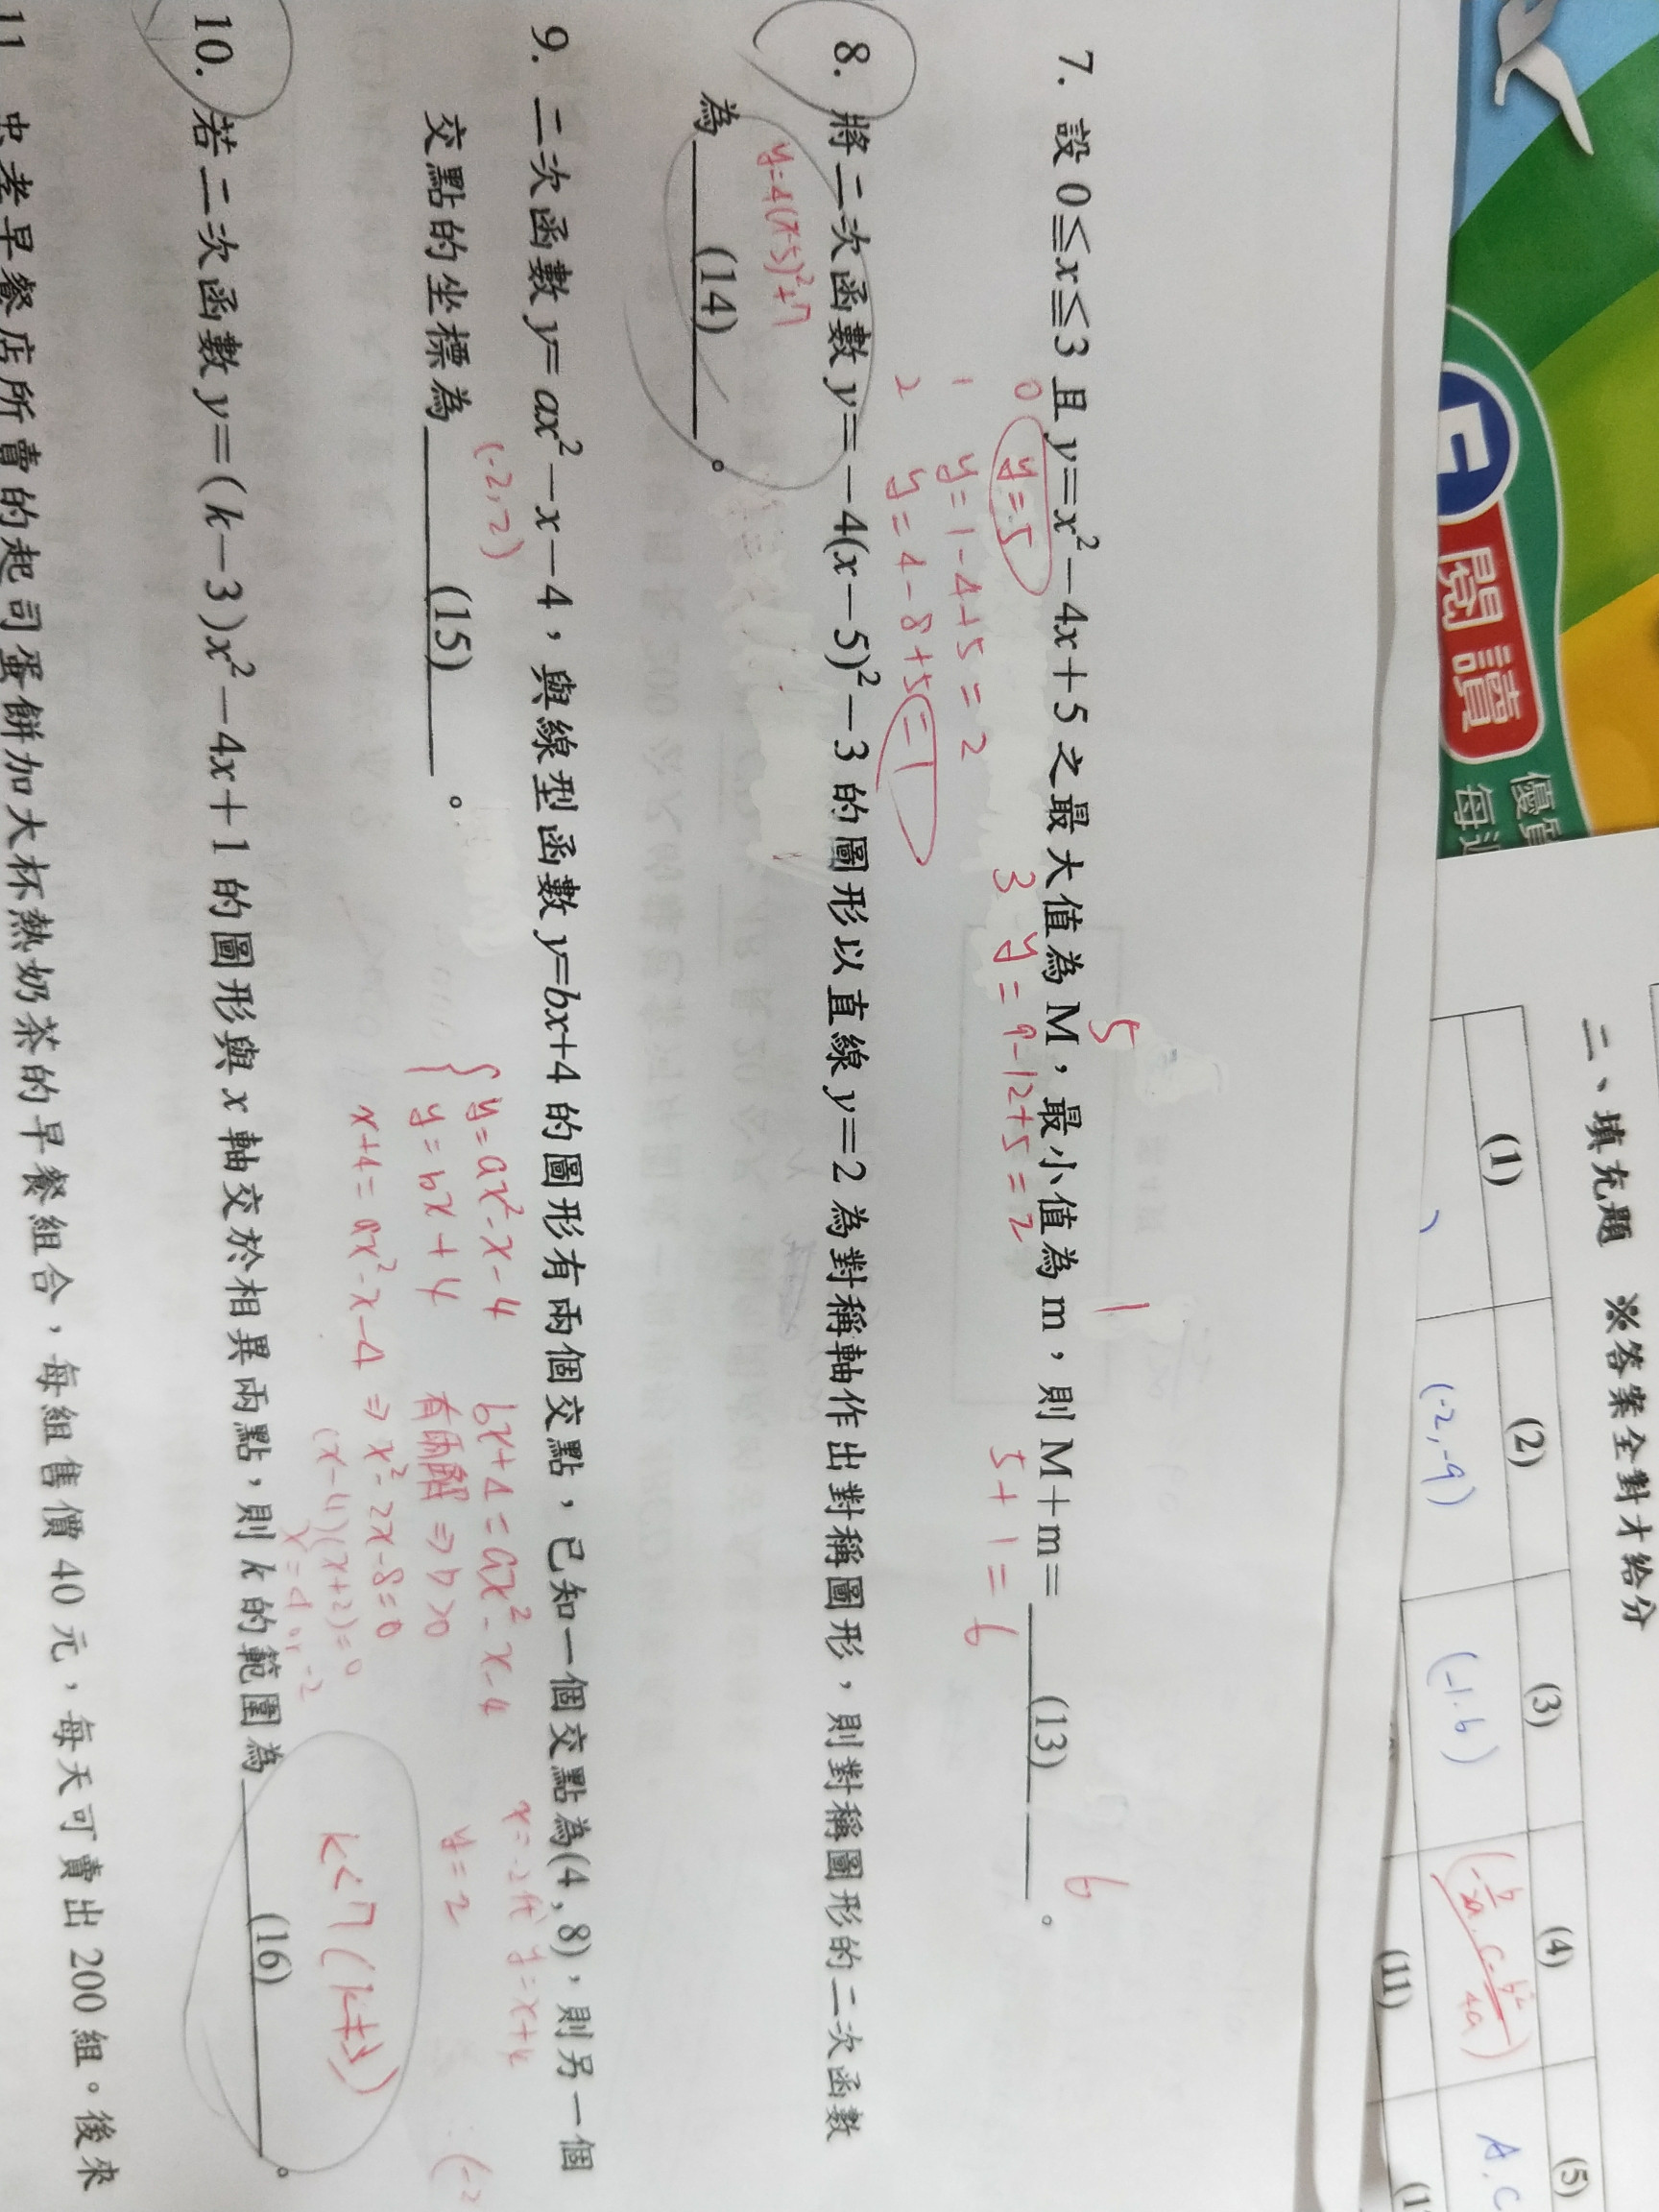 閱讀
優質
每
二、填充題　※答案全對才給分
(1) (2) (3) (4) (5)
(-2,-9) (-1.6) (-b/2a, c-b²/4a) A.C
(11)
5 1 6
7. 設 0≦x≦3 且 y=x²-4x+5 之最大值為 M，最小值為 m，則 M+m= (13) 。
0 y=5 3 y=9-12+5=2 5+1=6
1 y=1-4+5=2
2 y=4-8+5=1
8. 將二次函數 y=-4(x-5)²-3 的圖形以直線 y=2 為對稱軸作出對稱圖形，則對稱圖形的二次函數
y=4(x-5)²+7
為 (14) 。
9. 二次函數 y=ax²-x-4，與線型函數 y=bx+4 的圖形有兩個交點，已知一個交點為(4,8)，則另一個
(-2,2) y=ax²-x-4 bx+4=ax²-x-4 x=-2代 y=x+4
交點的坐標為 (15) 。
y=bx+4 有兩解⇒D>0 y=2 (-2
x+4=ax²-x-4 ⇒ x²-2x-8=0
(x-4)(x+2)=0
x=4 or -2
k<7(k≠3)
10. 若二次函數 y=(k-3)x²-4x+1 的圖形與 x 軸交於相異兩點，則 k 的範圍為 (16) 。
11 忠孝早餐店所賣的起司蛋餅加大杯熱奶茶的早餐組合，每組售價 40 元，每天可賣出 200 組。後來